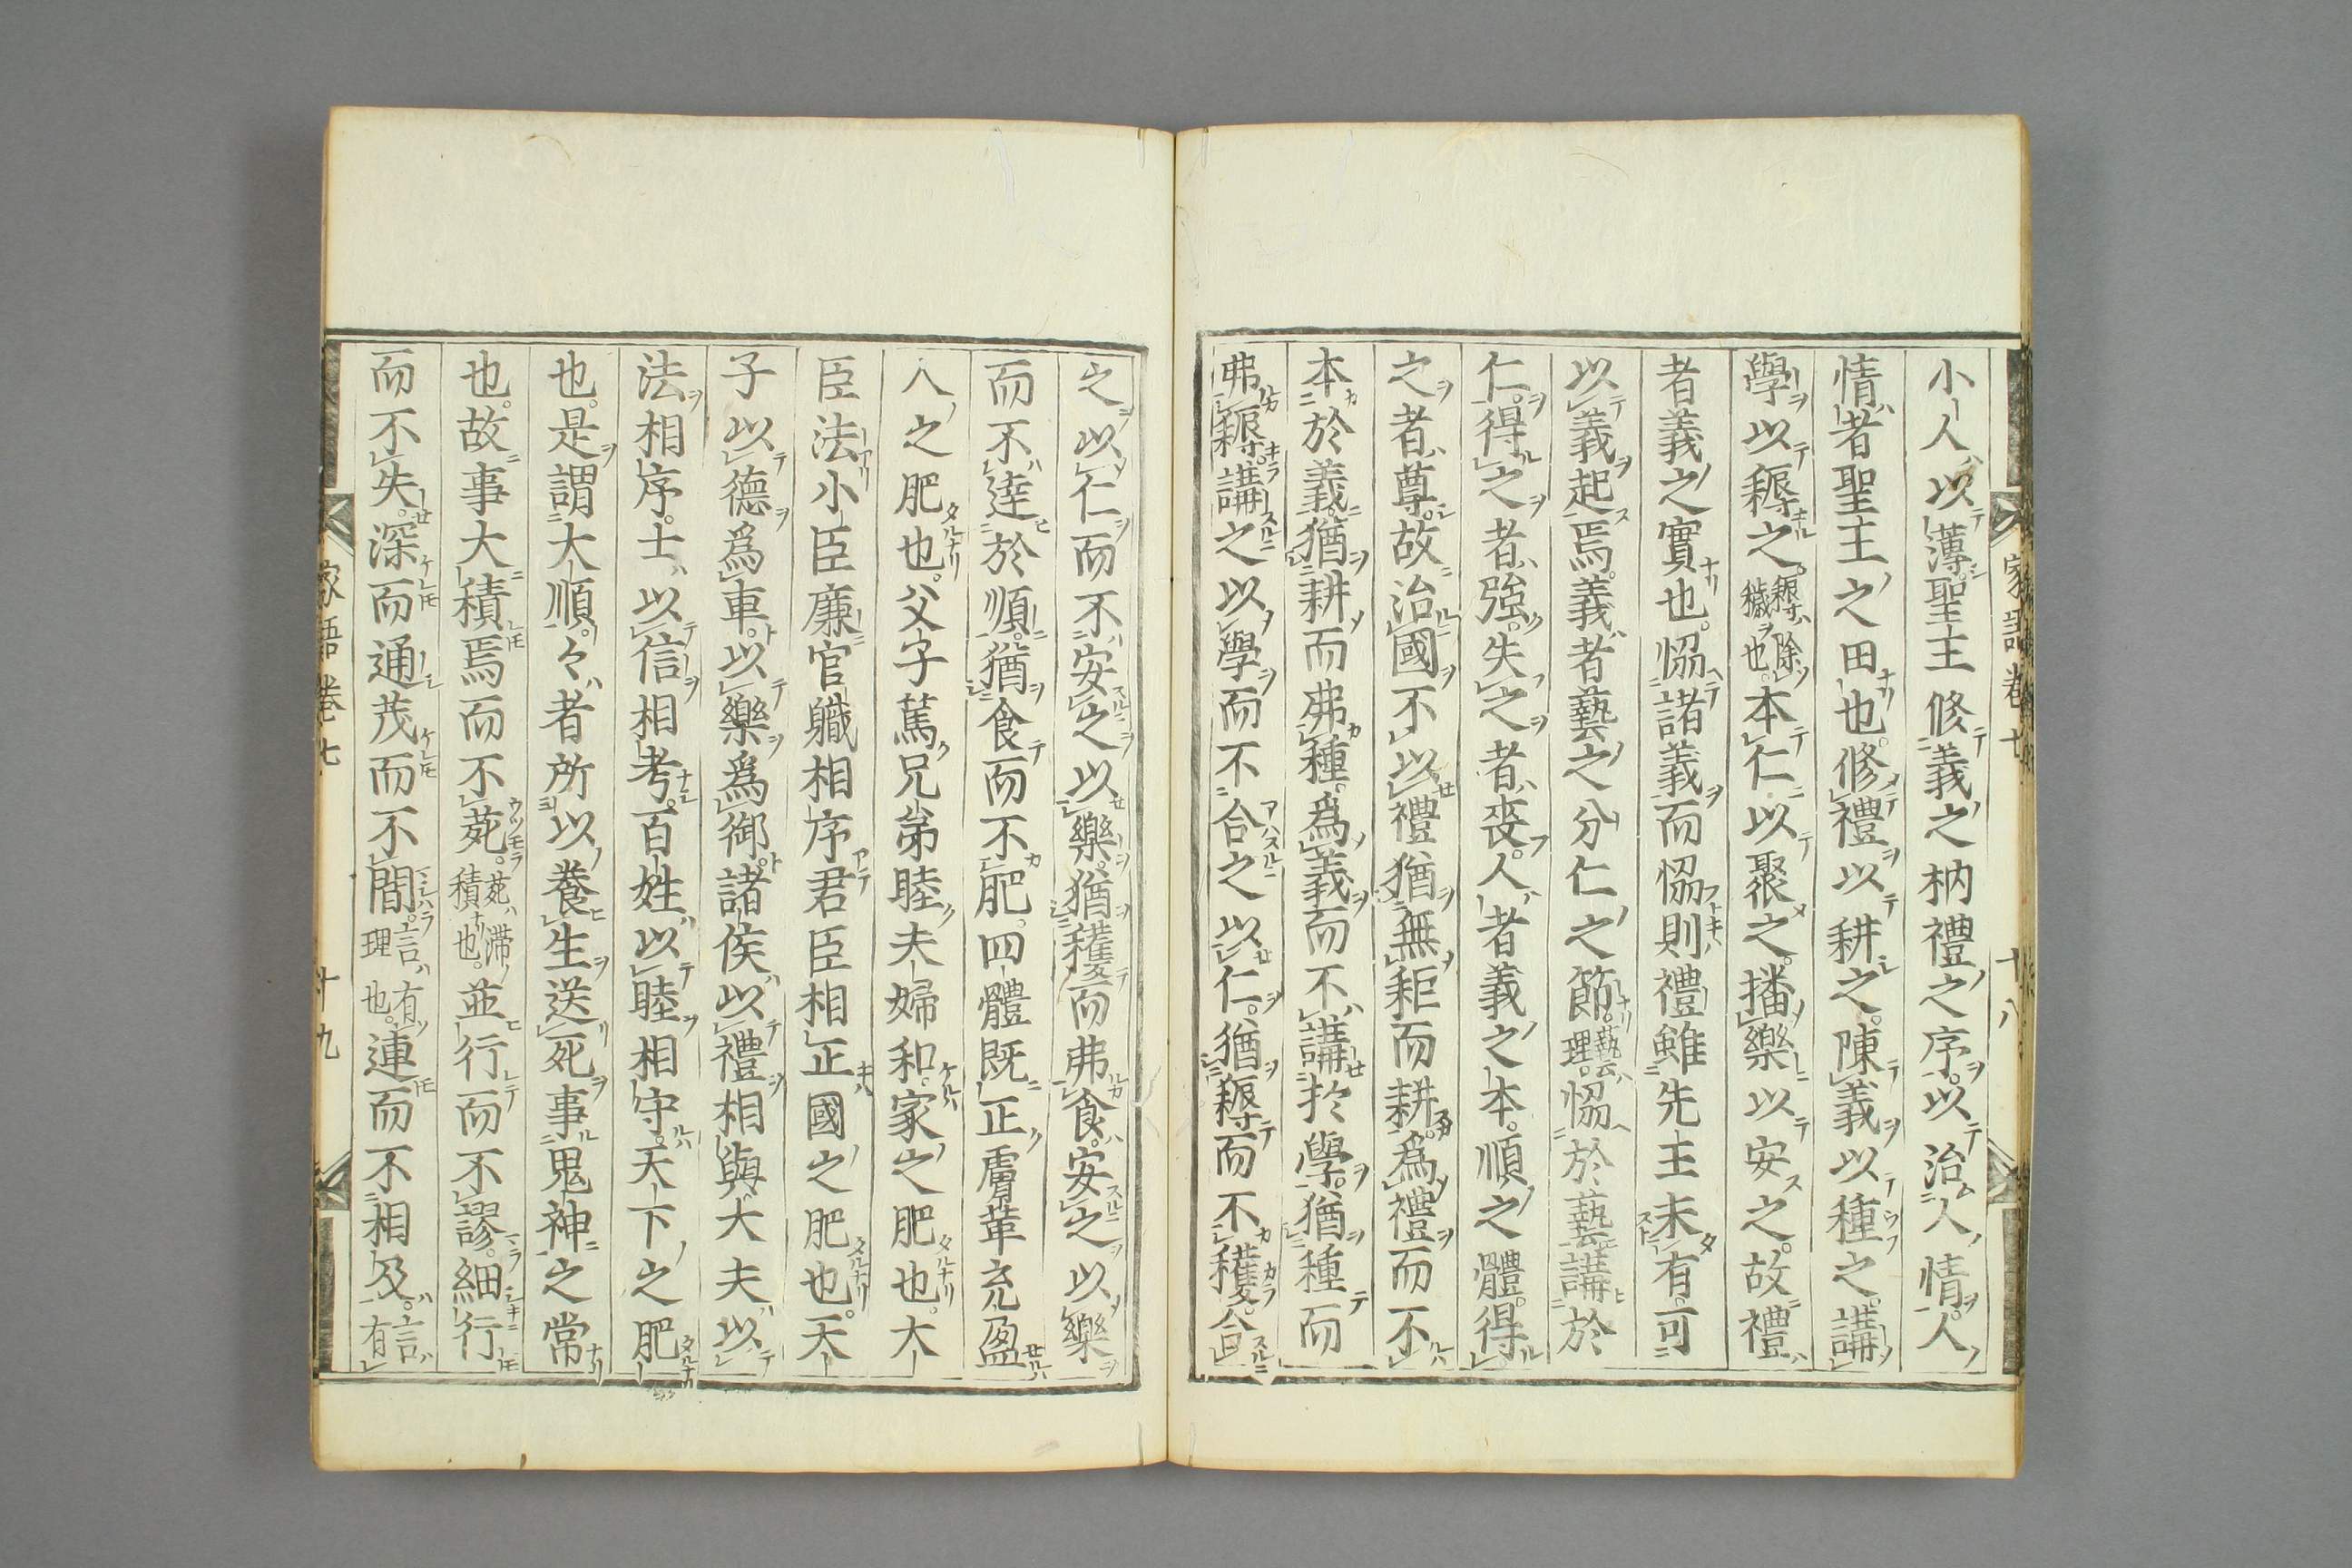 小人以薄聖主修義之枘禮之序以治人情人
情者聖王之田也修禮以耕之陳義以種之講
學以耨之耨除穢也本仁以聚之播樂以安之故禮
者義之實也恊諸義而恊則禮雖先主未有可
以義起焉義者藝之分仁之節藝云理恊於藝講於
仁得之者強失之者喪人者義之本順之體得
之者尊故治國不以禮猶無耟而耕爲禮而不
本於義猶耕而弗種爲義而不講於學猶種而
弗耨講之以學而不合之以仁猶耨而不穫合
之以仁而不安之以樂猶穫而弗食安之以樂
而不達於順猶食而不肥四體既正膚革充盈
人之肥也父子篤兄弟睦夫婦和家之肥也大
臣法小臣廉官軄相序君臣相正國之肥也天
子以德爲車以樂爲御諸侯以禮相與大夫以
法相序士以信相考百姓以睦相守天下之肥
也是謂大順々者所以養生送死事鬼神之常
也故事大積焉而不菀菀滯積也並行而不謬細行
而不失深而通茂而不間言有理也連而不相及言有
家語卷七 十八
家語卷七 十九